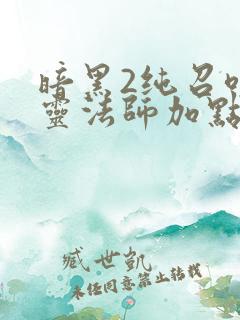 暗黑2纯召
靈法師加點
臧世凯
未经同意禁止转载